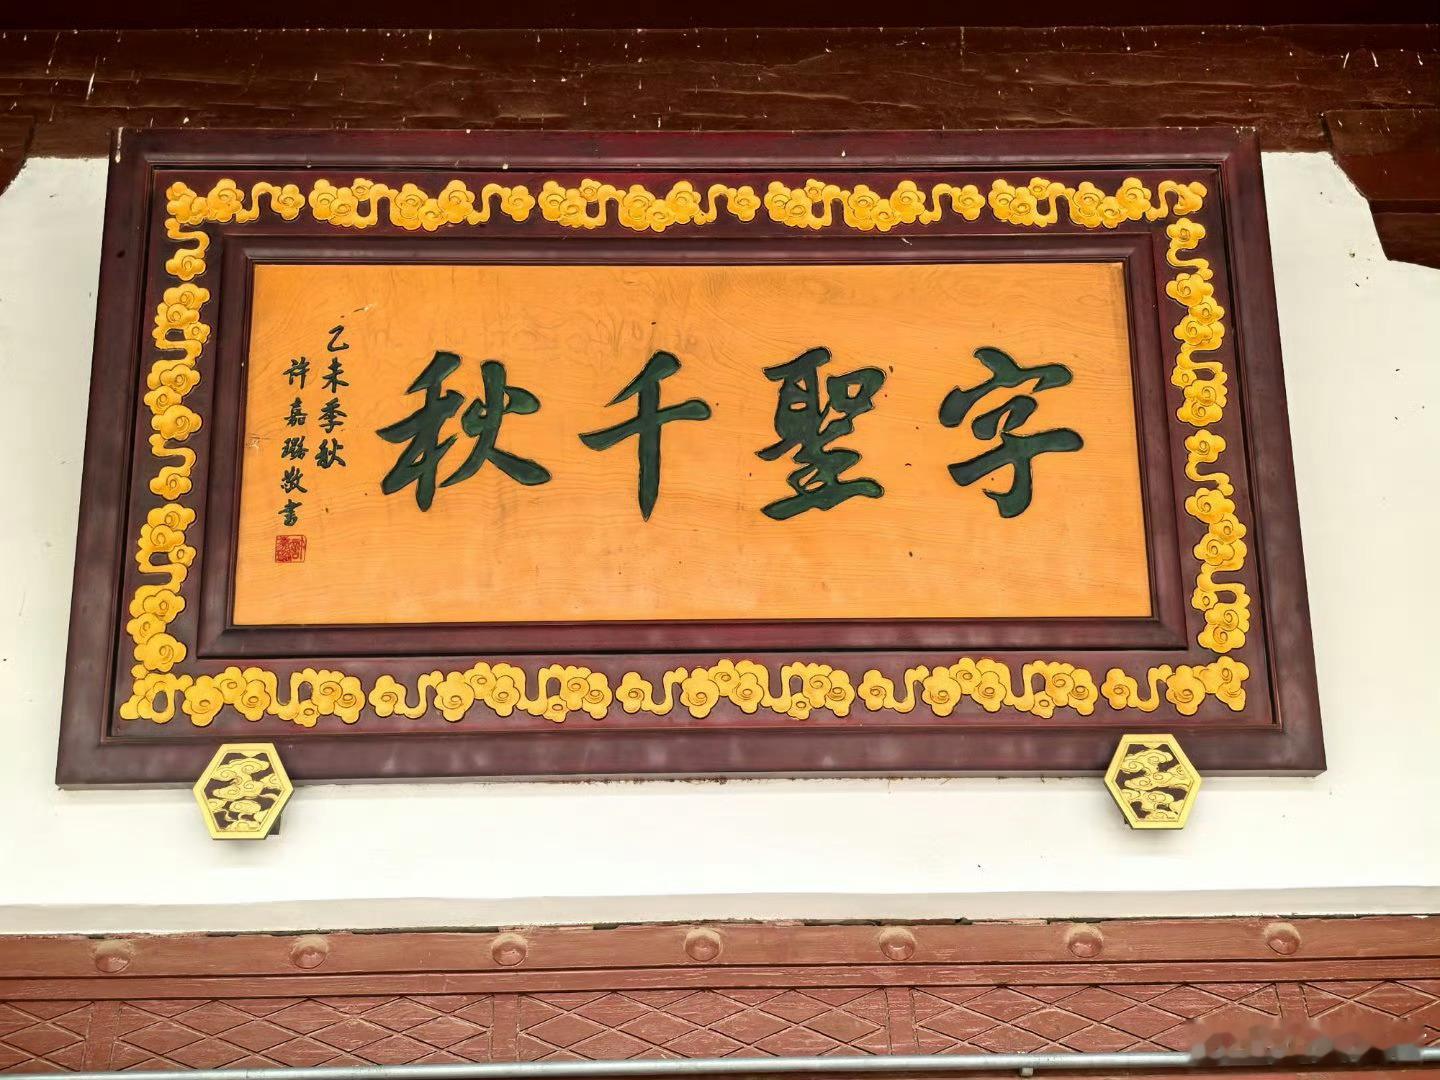 字聖千秋
乙未季秋
許嘉璐敬書